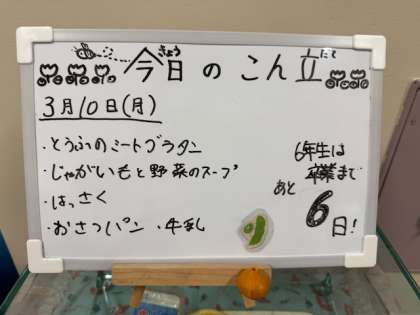 今日のこん立
きょう
だて
3月10日(月)
・とうふのミートグラタン
・じゃがいもと野菜のスープ
・はっさく
・おさつパン ・牛乳
6年生は
卒業まで
あと
6
日!